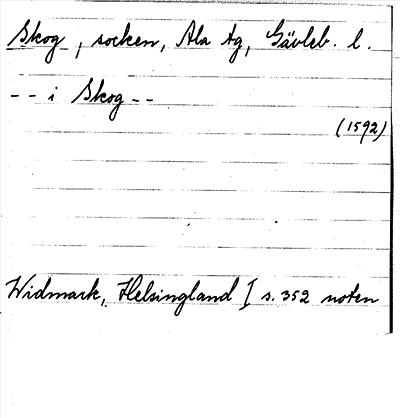 Skog, socken, Ala tg, Gävleb. l.
-- i Skog --
(1592)
Widmark, Helsingland I s. 352 noten